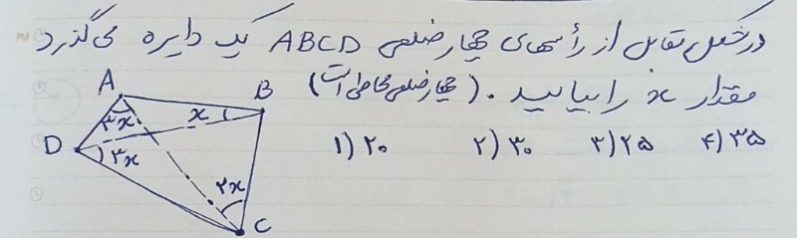 در شکل مقابل از رأسهای چهارضلعی ABCD یک دایره می گذرد
مقدار x را بیابید. (چهارضلعی محاطی است)
۱) ۲۰ ۲) ۳۰ ۳) ۲۵ ۴) ۳۵
A
B
D
C
۳x
x
۳x
۲x
PM